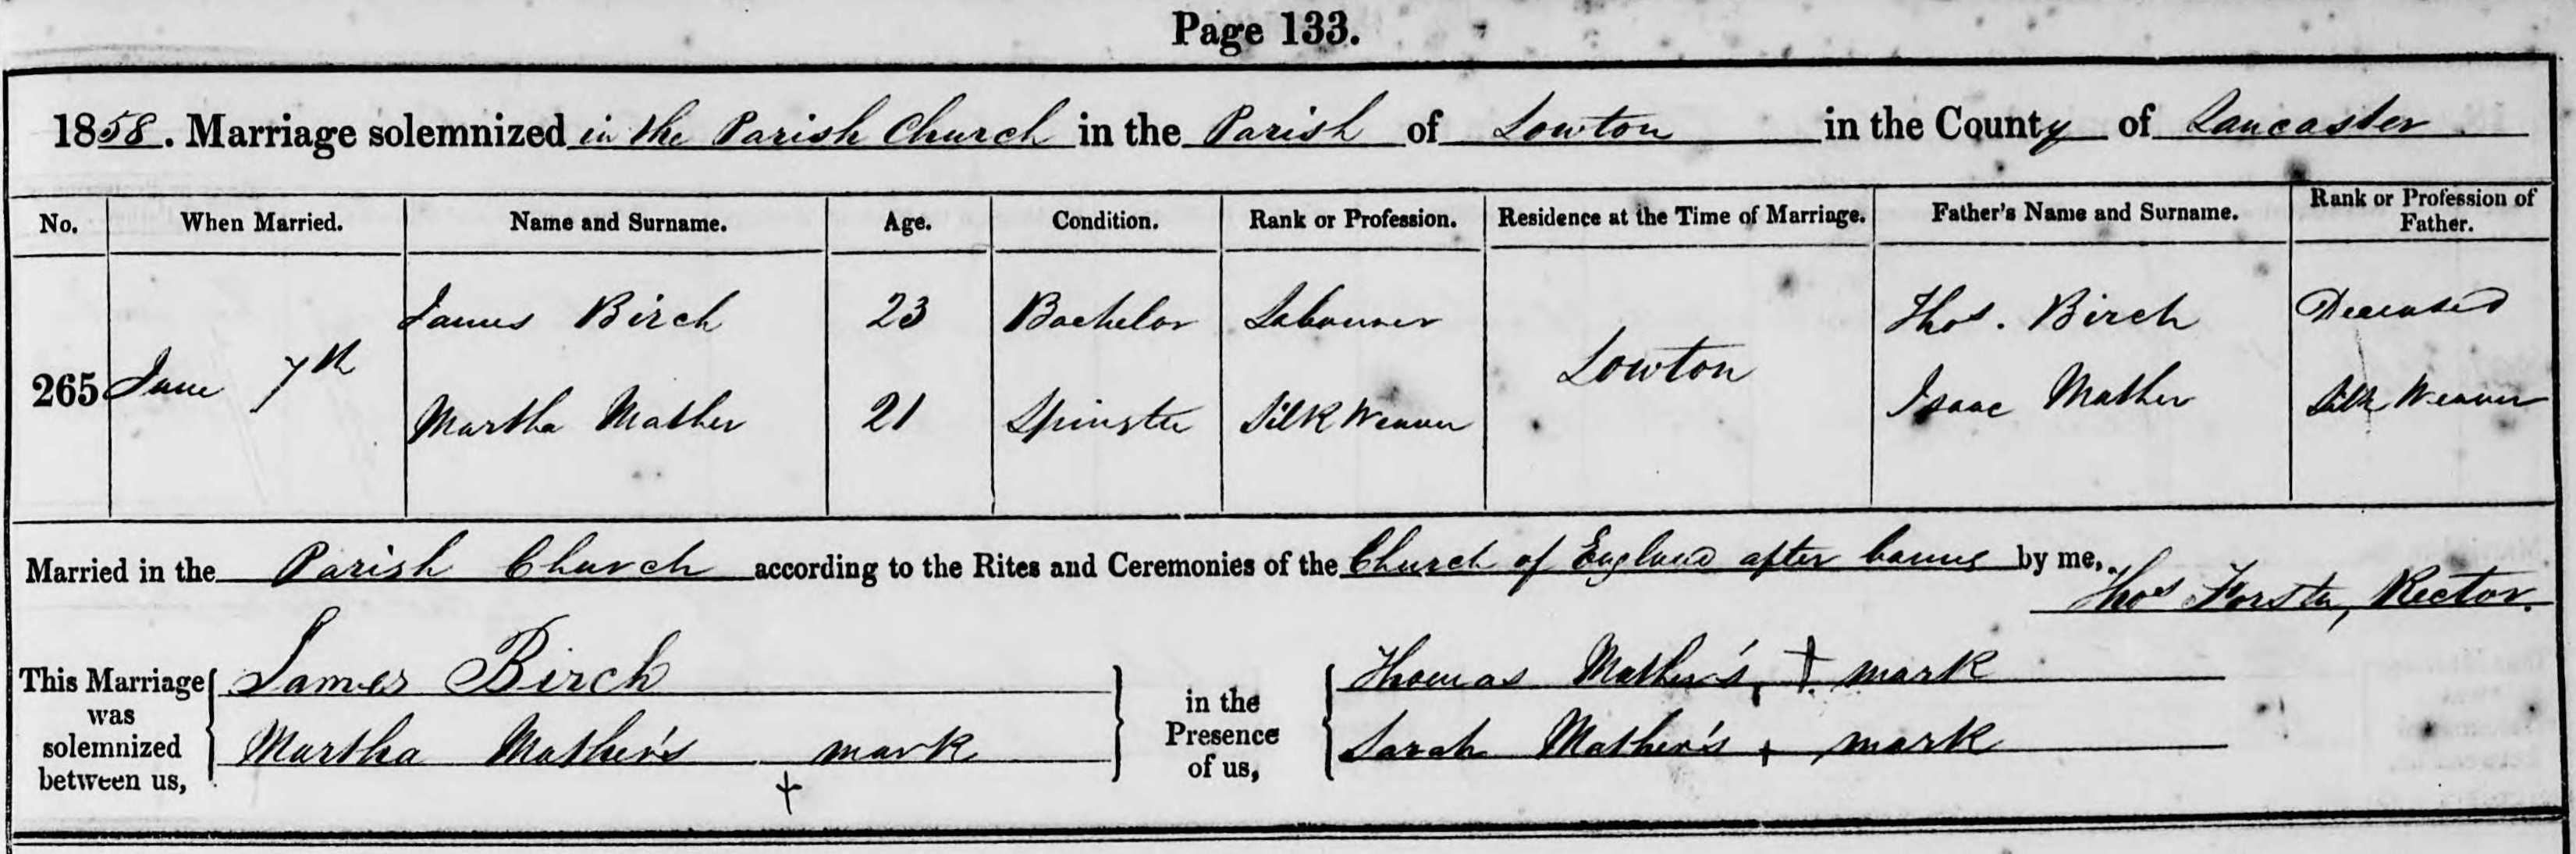 Page 133.
1858. Marriage solemnized in the Parish Church in the Parish of Lowton in the County of Lancaster
No. When Married. Name and Surname. Age. Condition. Rank or Profession. Residence at the Time of Marriage. Father's Name and Surname. Rank or Profession of Father.
265 June 7th
James Birch 23 Bachelor Labourer Lowton Thos. Birch Deceased
Martha Mather 21 Spinster Silk Weaver Isaac Mather Silk Weaver
Married in the Parish Church according to the Rites and Ceremonies of the Church of England after banns by me,
Thos Forster, Rector.
This Marriage was solemnized between us,
James Birch
Martha Mather's + mark
in the Presence of us,
Thomas Mather's + mark
Sarah Mather's + mark